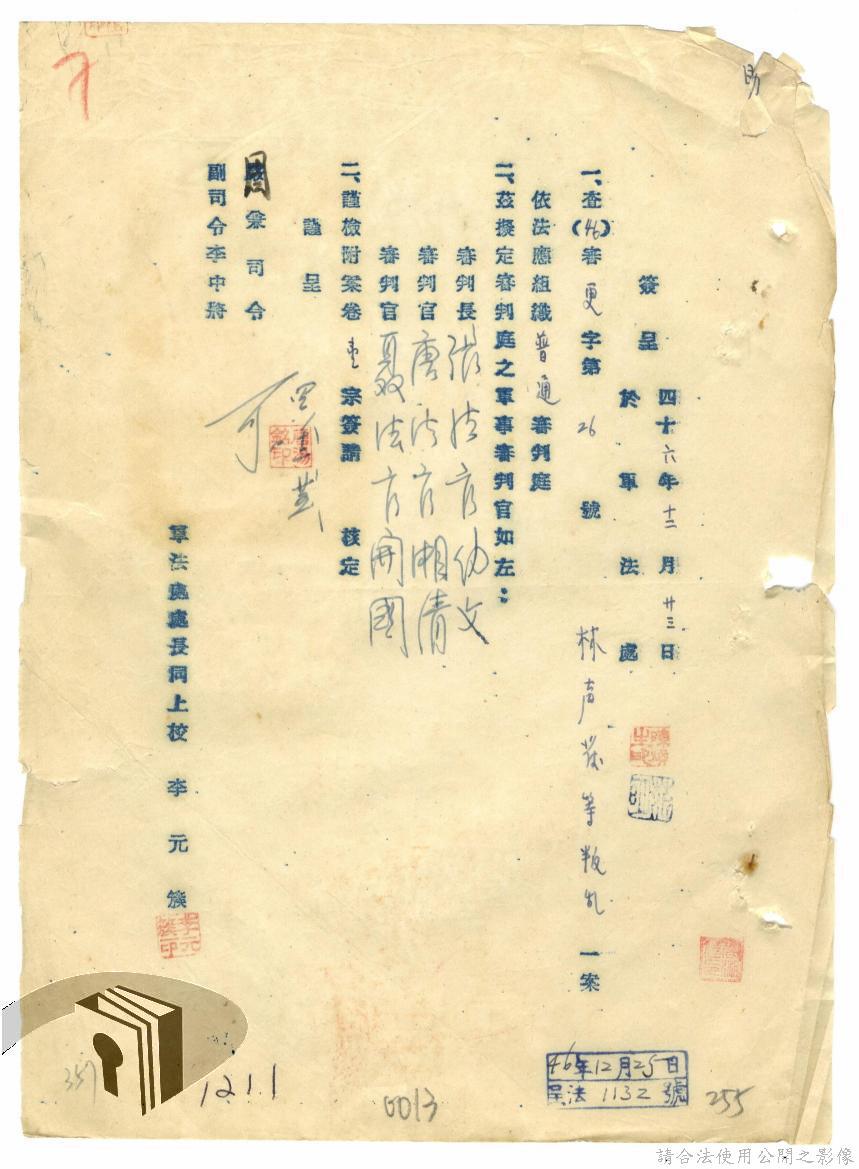 簽呈 四十六年十二月廿三日
於軍法處
一、查(46)審更字第26號 林声發等叛乱 一案
依法應組織普通審判庭
二、茲擬定審判庭之軍事審判官如左：
審判長 張法官幼文
審判官 唐法官湘清
審判官 聂法官開國
二、謹檢附案卷壹宗簽請 核定
謹呈
周兼司令
副司令李中將
可
軍法處處長同上校 李元簇
李元簇印
46年12月25日
呈法 1132 號
357
1211
0013
255
請合法使用公開之影像